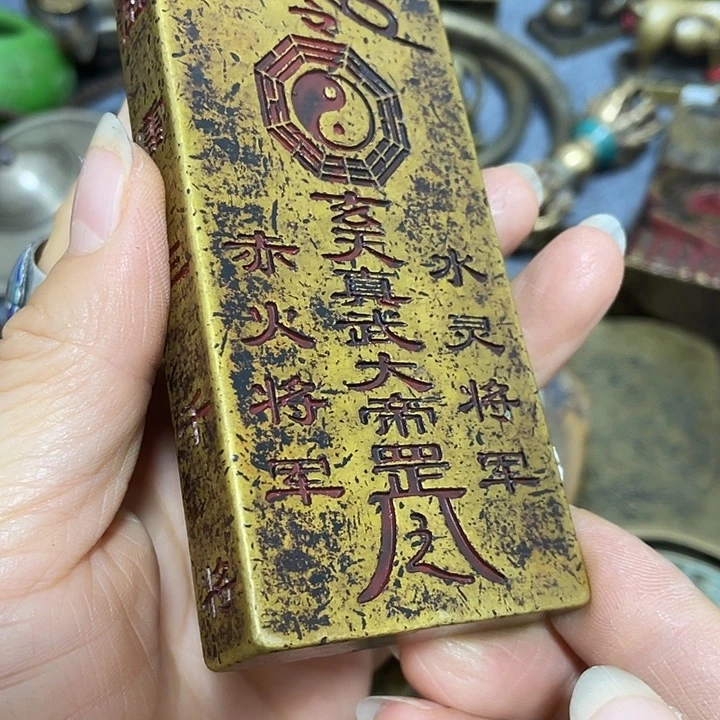 水灵将军
玄天真武大帝罡
赤火将军
千将